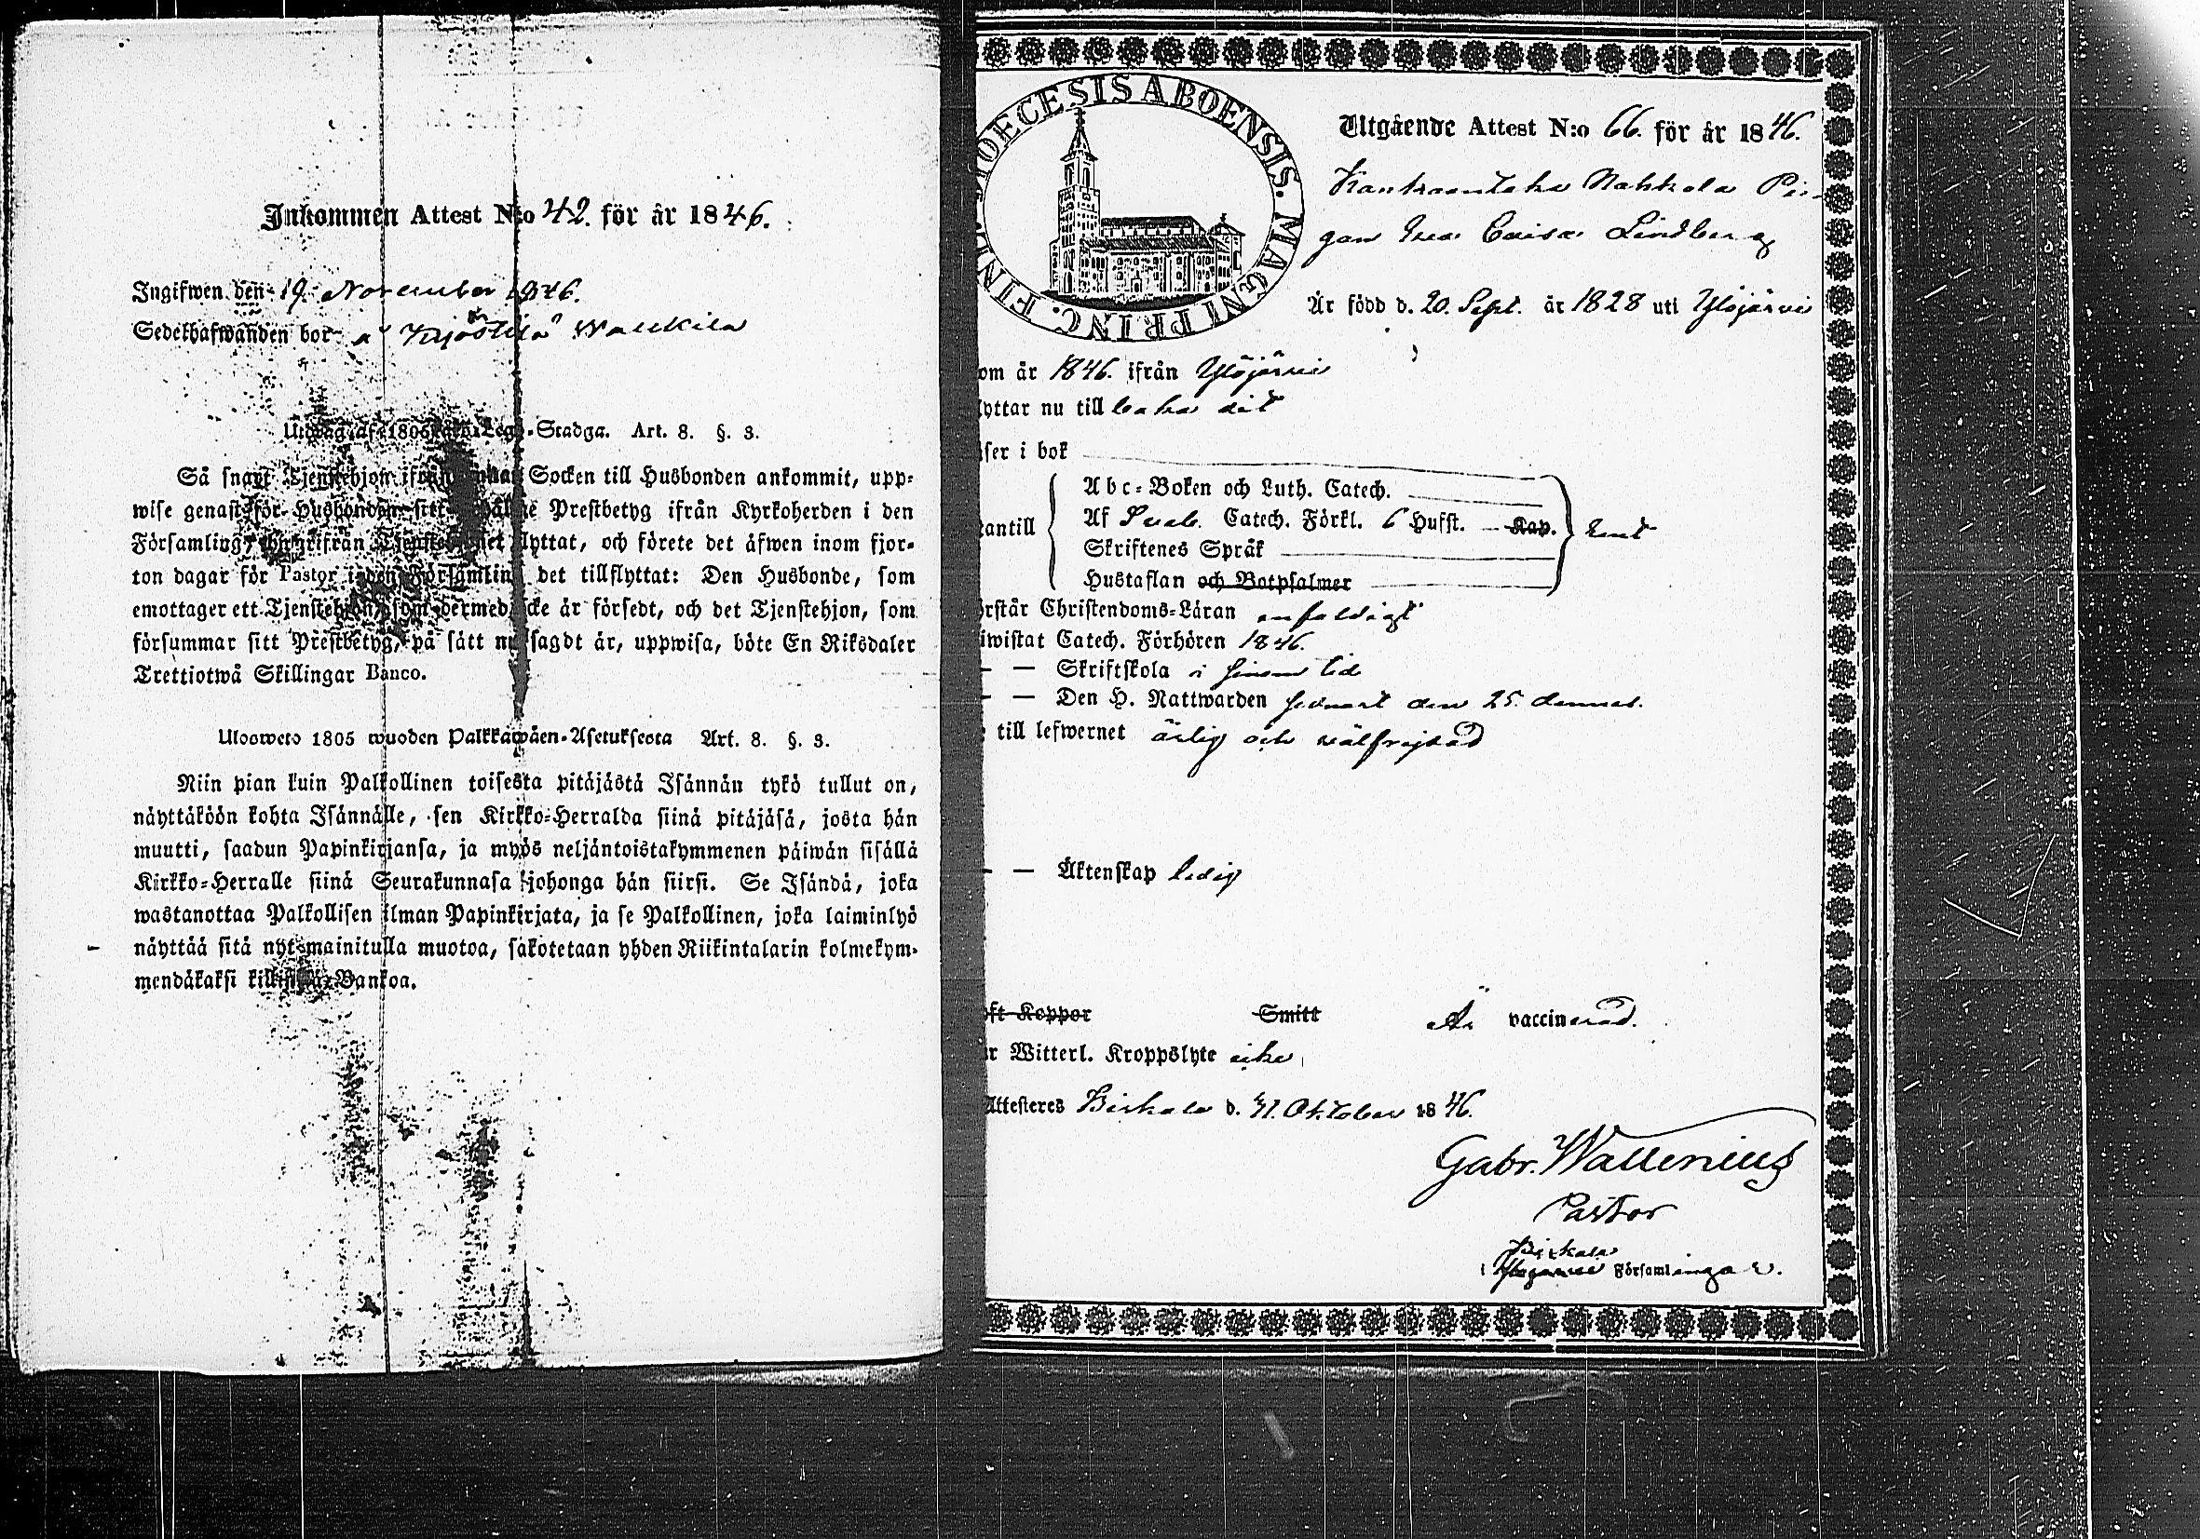 Inkommen Attest N:o 42. för år 1846.
Ingifwen den 19 November 1846.
Sedelhafwanden bor å Wallkila
Utdrag af 1805 Lego-Stadga. Art. 8. §. 3.
Så snart Tjenstehjon ifrån annan Socken till Husbonden ankommit, upp-
wise genast för Husbonden sitt Prestbetyg ifrån Kyrkoherden i den
Församling, hwarifrån Tjenstehjonet flyttat, och förete det åfwen inom fjor-
ton dagar för Pastor i den Församling det tillflyttat: Den Husbonde, som
emottager ett Tjenstehjon, som dermed icke år försedt, och det Tjenstehjon, som
försummar sitt Prestbetyg, på sått nu sagdt år, uppwisa, böte En Riksdaler
Trettiotwå Skillingar Banco.
Ulosweto 1805 wuoden Palkkawåen-Asetuksesta Art. 8. §. 3.
Niin pian kuin Palkollinen toisesta pitåjåstå Isånnån tykö tullut on,
nåyttåköön kohta Isånnålle, sen Kirkko-Herralda siinå pitåjåså, josta hån
muutti, saadun Papinkirjansa, ja myös neljåntoistakymmenen påiwån sisållå
Kirkko-Herralle siinå Seurakunnasa johonga hån siirsi. Se Isåndå, joka
wastanottaa Palkollisen ilman Papinkirjata, ja se Palkollinen, joka laiminlyö
nåyttåå sitå nyt mainitulla muotoa, sakotetaan yhden Riikintalarin kolmekym-
mendåkaksi killingiå Bankoa.
DIOECESIS ABOENSIS. MAGNI PRINC. FINL.
Utgående Attest N:o 66. för år 1846.
Nakkola Pi-
gan Eva Caisa Lindberg
Är född d. 20. Sept. år 1828 uti Ylöjärvi
om år 1846. ifrån Ylöjärvi
lyttar nu till baka dit
åser i bok
Abc-Boken och Luth. Catech.
antill Af Sveb. Catech. Förkl. 6 Hufst. Kap.
Skriftenes Språk
Hustaflan och Botpsalmer
örstår Christendoms-Låran enfaldigt
iwistat Catech. Förhören 1846.
— — Skriftskola i sinom tid
— — Den H. Nattwarden senast den 25. dennes.
till lefwernet ärlig och välfrejdad
— — Åktenskap ledig
oft Koppor Smitt Är vaccinerad.
ar Witterl. Kroppslyte icke
Attesteres Birkala d. 31. Oktober 1846.
Gabr. Wallenius
Pastor
Birkala
i Ylöjärvi Församlingar.